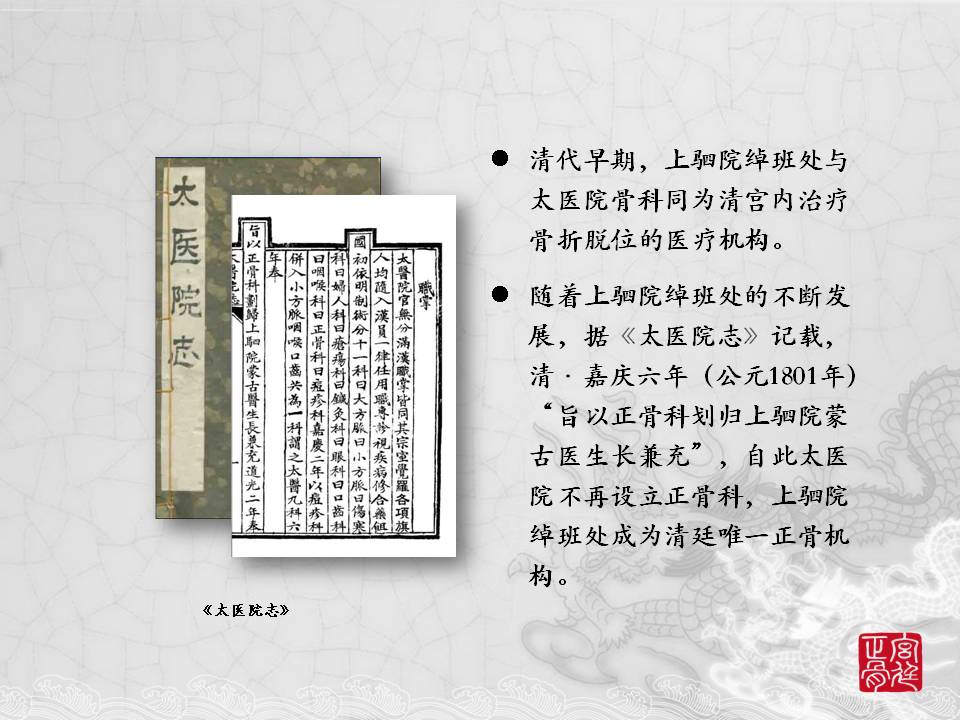 太
医
院
志
職掌
太醫院官無分滿漢職掌皆同其宗室覺羅各項旗
人均隨入漢員一律任用職專診視疾病修合藥餌
國初依明制術分十一科曰大方脈曰小方脈曰傷寒
科曰婦人科曰瘡瘍科曰鍼灸科曰眼科曰口齒科
曰咽喉科曰正骨科曰痘疹科嘉慶二年以痘疹科
併入小方脈咽喉口齒共為一科謂之太醫九科六
年奉
旨以正骨科劃歸上駟院蒙古醫生長兼充道光二年奉
《太医院志》
● 清代早期，上驷院绰班处与
太医院骨科同为清宫内治疗
骨折脱位的医疗机构。
● 随着上驷院绰班处的不断发
展，据《太医院志》记载，
清·嘉庆六年（公元1801年）
“旨以正骨科划归上驷院蒙
古医生长兼充”，自此太医
院不再设立正骨科，上驷院
绰班处成为清廷唯一正骨机
构。
宫廷
正骨